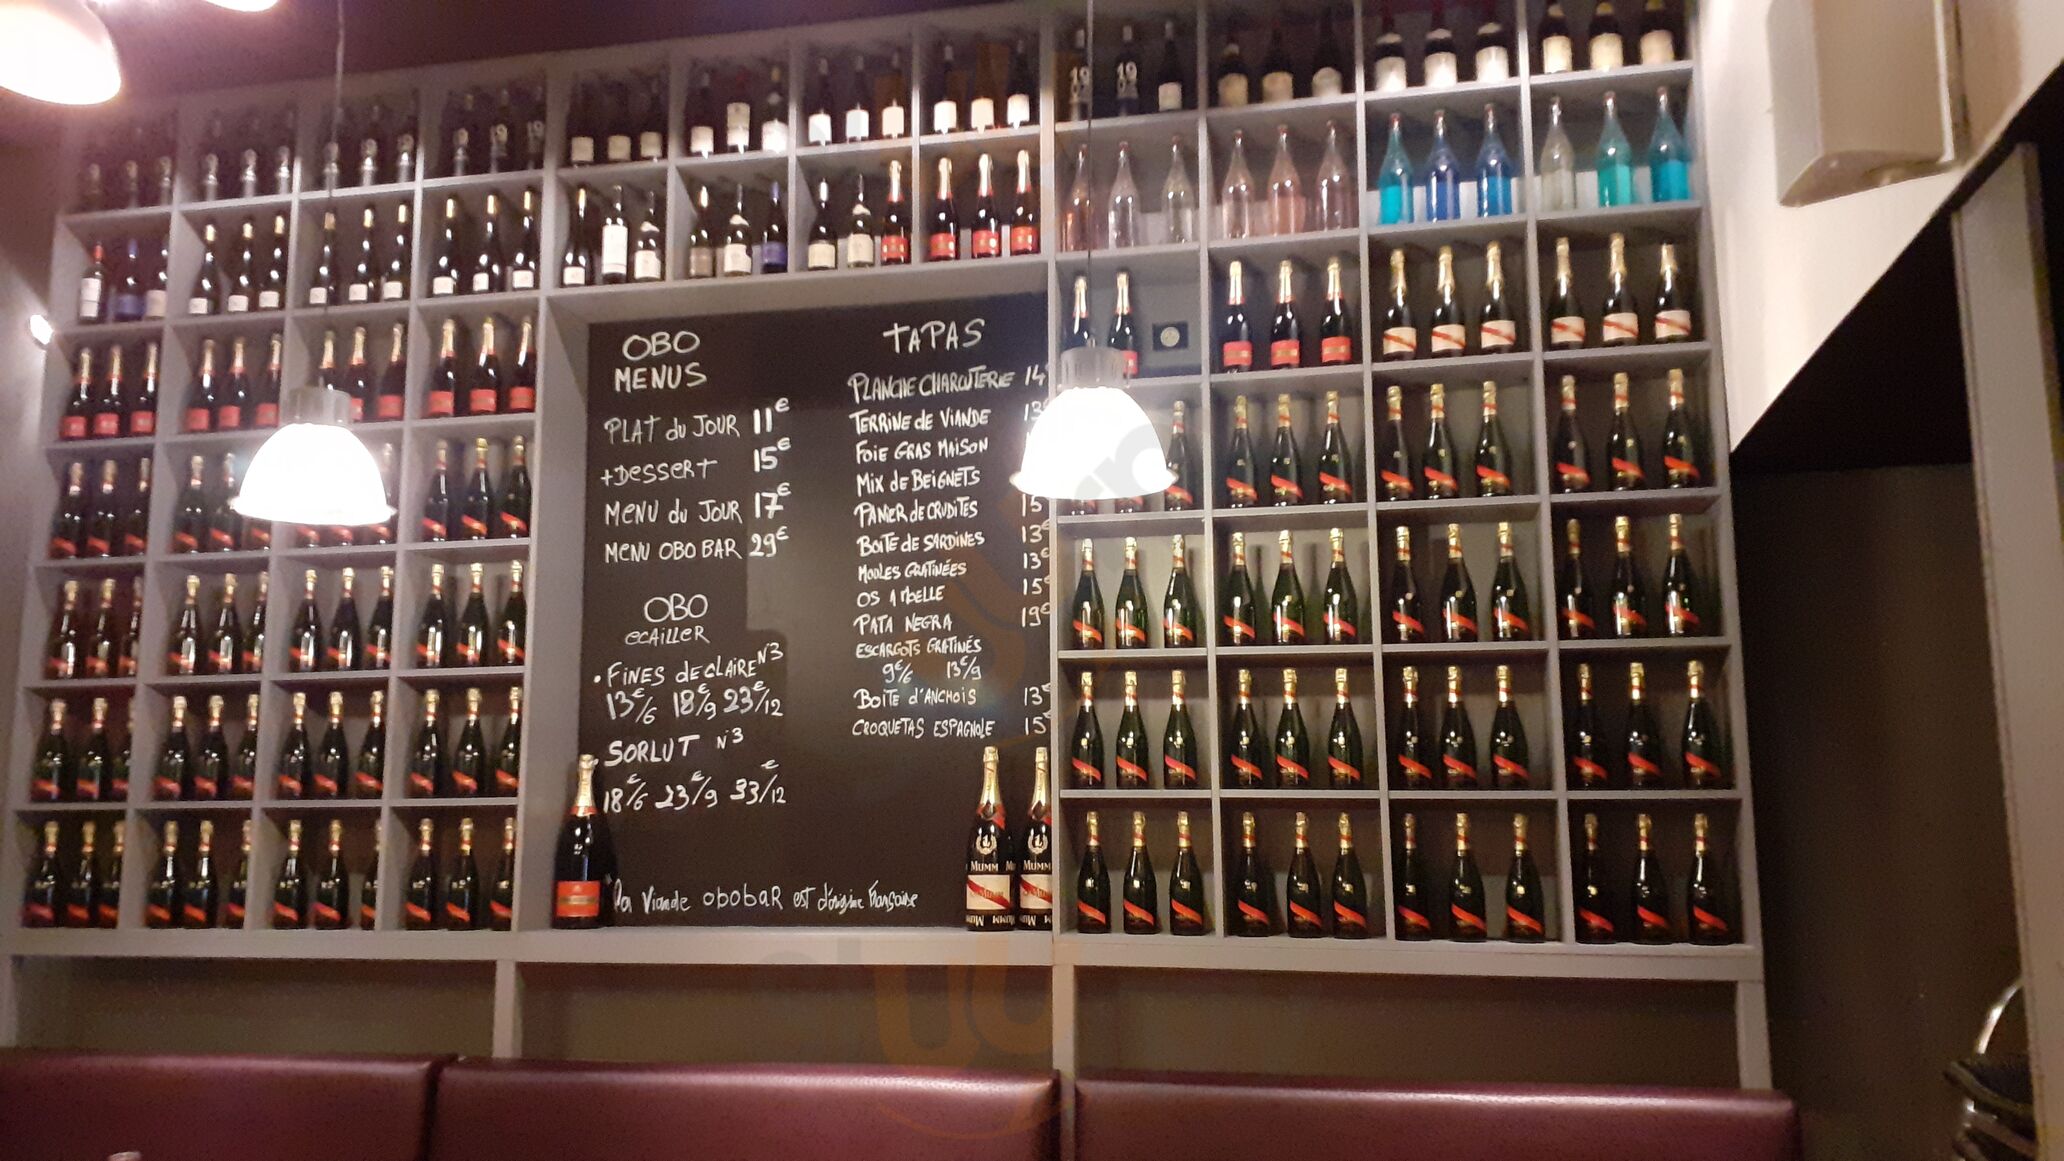 OBO
MENUS
PLAT du JOUR 11€
+DESSERT 15€
MENU du JOUR 17€
MENU OBO BAR 29€
OBO
ECAILLER
• FINES de CLAIRE N°3
13€/6 18€/9 23€/12
• SORLUT N°3
18€/6 23€/9 33€/12
* la viande obobar est d'origine Française
TAPAS
PLANCHE CHARCUTERIE 14€
TERRINE de VIANDE 13€
FOIE GRAS MAISON
MIX de BEIGNETS
PANIER de CRUDITES 15
BOITE de SARDINES 13€
MOULES GRATINÉES 13€
OS A MOELLE 15€
PATA NEGRA 19€
ESCARGOTS GRATINÉS
9€/6 13€/9
BOITE d'ANCHOIS 13€
CROQUETAS ESPAGNOLE 15€
MUMM
MUMM
19
19